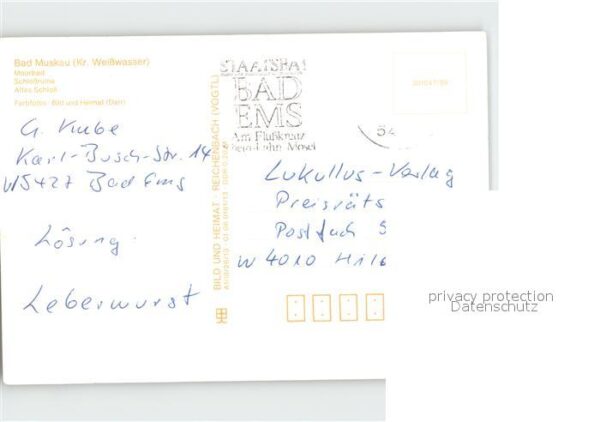 Bad Muskau (Kr. Weißwasser)
Moorbad
Schloßruine
Altes Schloß
Farbfotos: Bild und Heimat (Darr)
G. Kube
Karl-Busch-Str. 14
W5427 Bad Ems
Lösung:
Leberwurst
BILD UND HEIMAT · REICHENBACH (VOGTL)
STAATSBAD
BAD
EMS
Am Flußkreuz
Rhein-Lahn-Mosel
54
Lukullus-Verlag
Preisräts
Postfach
W 4010 Hild
privacy protection
Datenschutz